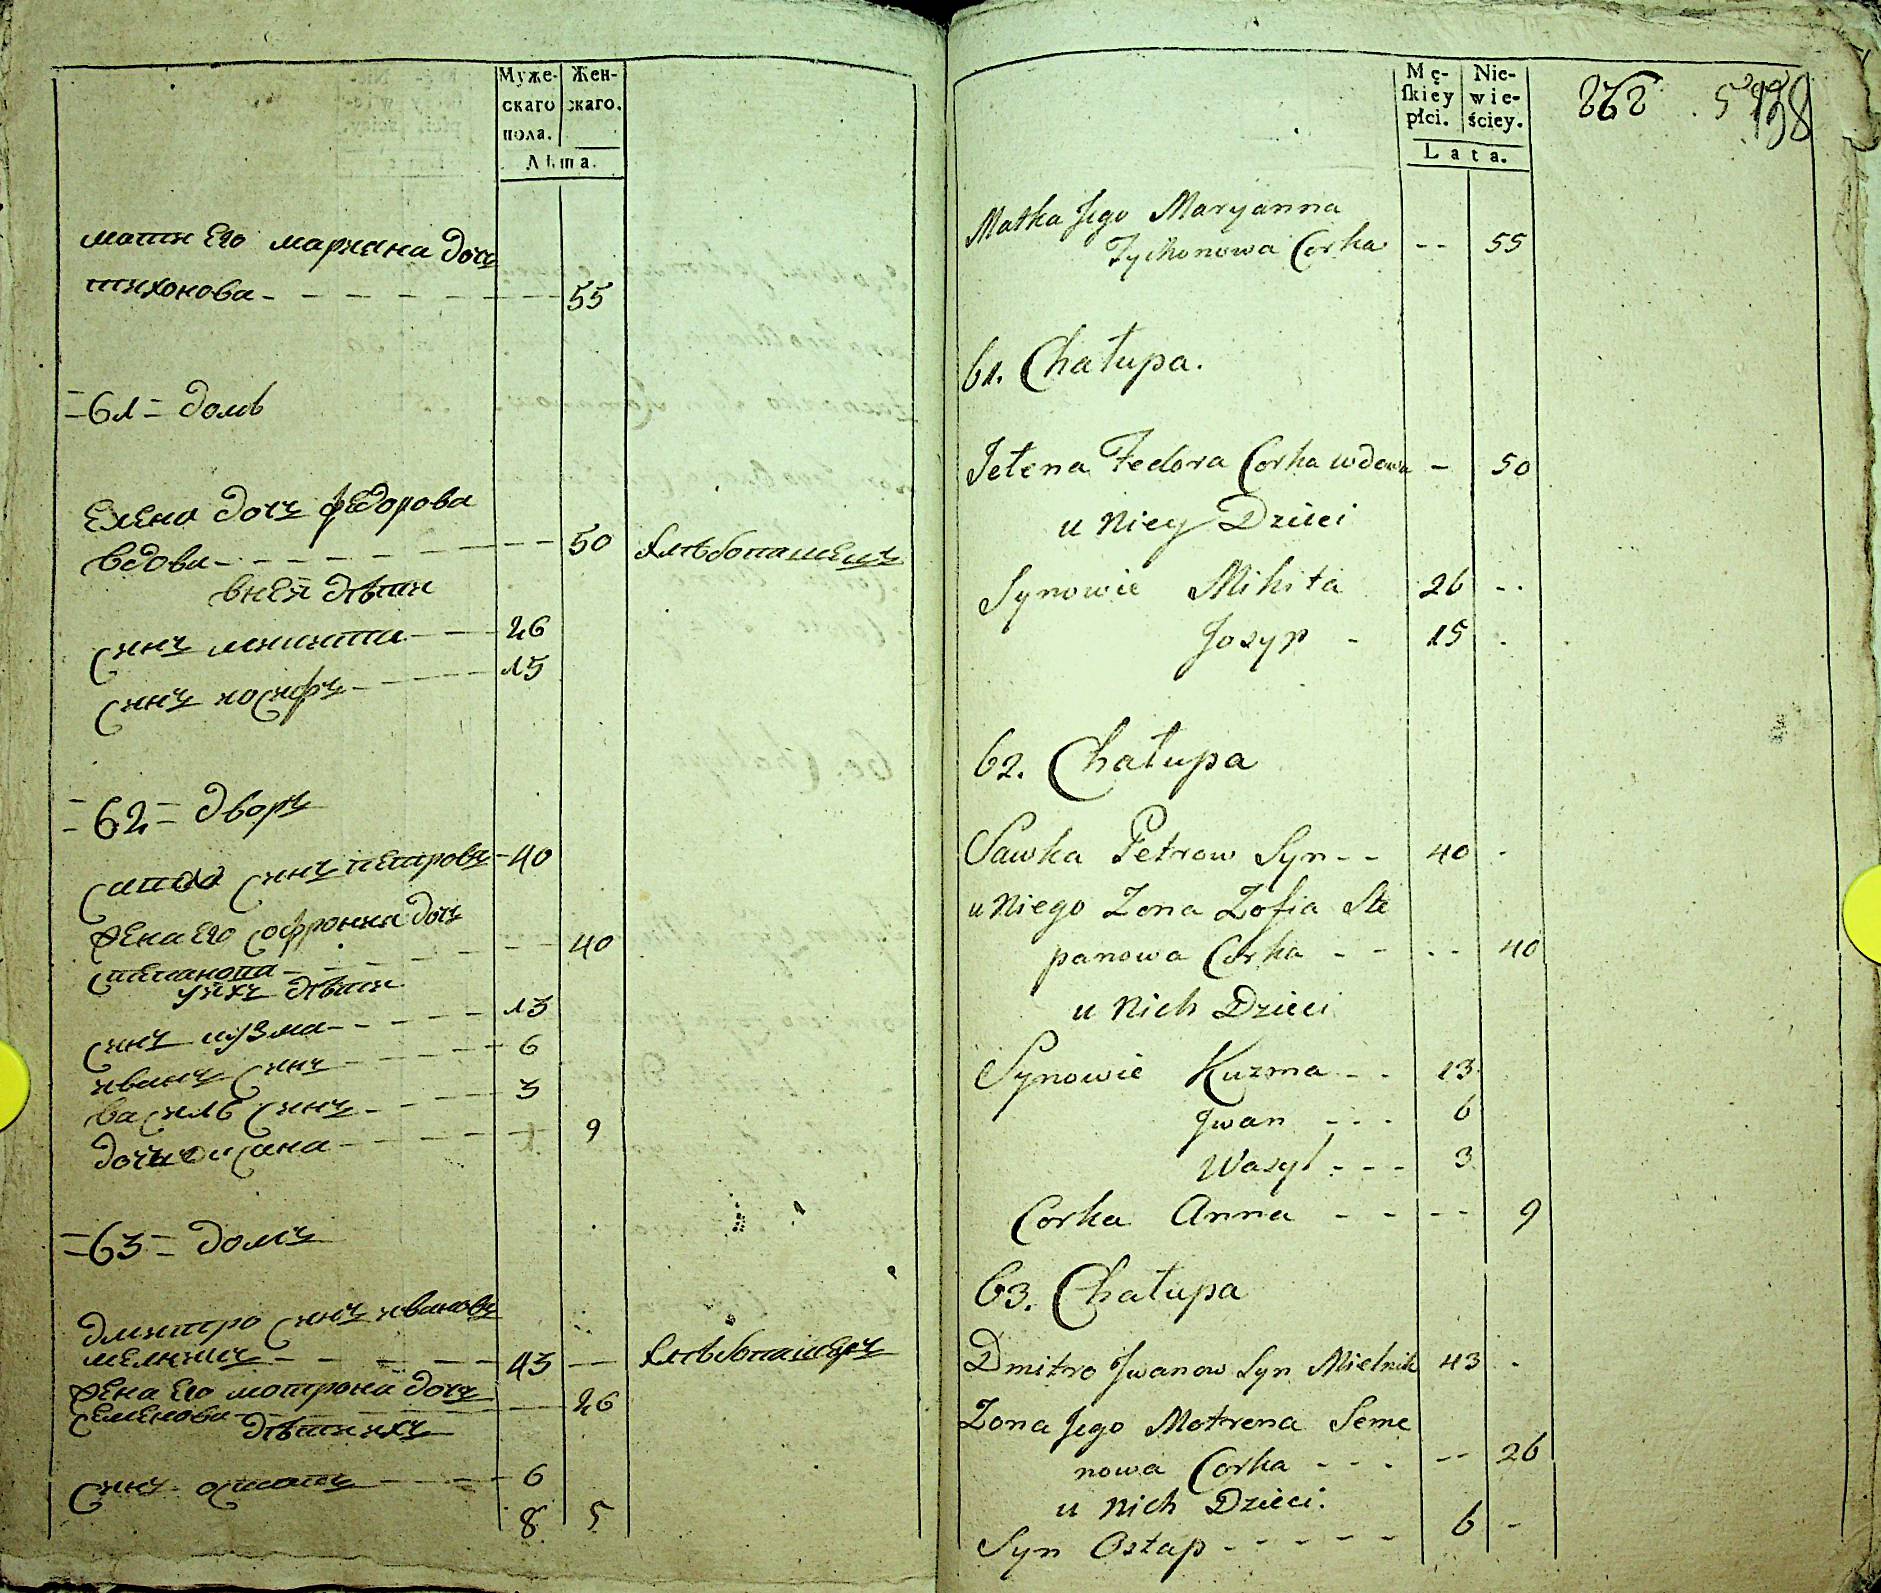 Муже-
скаго
пола.
Жен-
скаго.
Лѣта.
мати его мариана дочъ
тихонова - - - - - - 55
=61= домъ
елена дочъ федорова
вдова - - - - - - 50 хлѣбопашецъ
внея дѣти
синъ микита - - 26
синъ иосифъ - - - 15
=62= дворъ
синъ петровъ - 40
жена его софрония дочъ
степанова - - - - - 40
уихъ дѣти
синъ кузма - - - - - 13
иванъ синъ - - - - 6
василь синъ - - - - 3
дочъ - - - - - 9
=63= домъ
дмитро синъ ивановъ
мелникъ - - - - - 43 -- хлѣбопашецъ
жена его мотрона дочъ
семенова - - - - - 26
дѣти ихъ
синъ остапъ - - - - 6
8 5
Mę-
ſkiey
płci.
Nie-
wie-
ściey.
Lata.
262
138
Matka Jego Maryanna
Tychonowa Corka -- 55
61. Chałupa.
Jełena Fedora Corka wdowa - 50
u Niey Dzieci
Synowie Mikita 26 --
Josyp - 15 -
62. Chałupa
Sawka Petrow Syn -- 40 -
u Niego Zona Zofia Ste
panowa Corka - - -- 40
u Nich Dzieci
Synowie Kuzma - - 13
Jwan - - - 6
Wasyl - - - 3
Corka Anna - - -- 9
63. Chałupa
Dmitro Jwanow Syn Mielnik 43 -
Zona Jego Motrena Seme
nowa Corka - - - -- 26
u Nich Dzieci.
Syn Ostap - - - - - 6 -